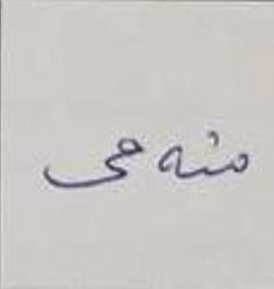 منه حى